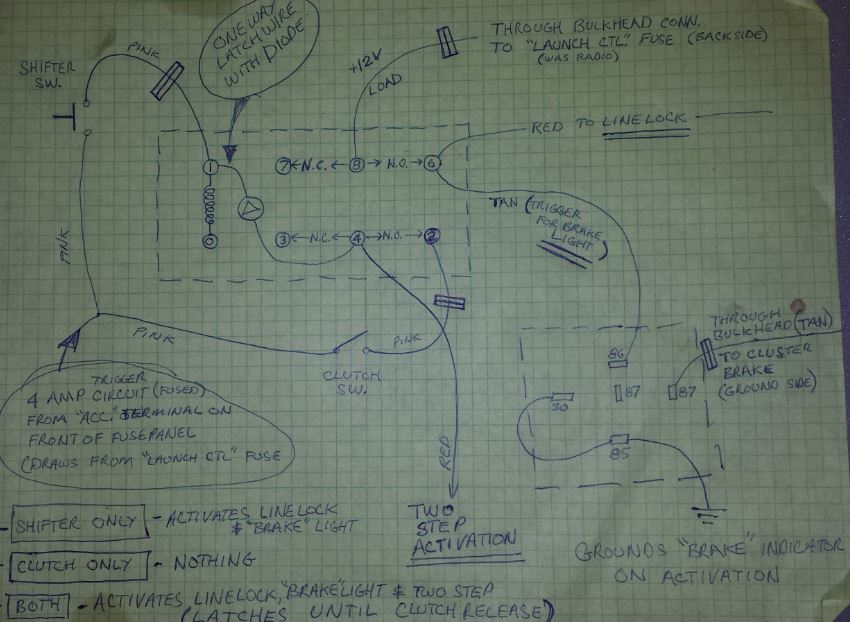 ONE WAY
LATCH WIRE
WITH DIODE
THROUGH BULKHEAD CONN.
TO "LAUNCH CTL." FUSE (BACKSIDE)
(WAS RADIO)
PINK
SHIFTER
SW.
+12V
LOAD
RED TO LINELOCK
1
7 N.C. 8 N.O. 6
TAN (TRIGGER
FOR BRAKE
LIGHT)
0
3 N.C. 4 N.O. 2
PINK
PINK
PINK
CLUTCH
SW.
THROUGH
BULKHEAD (TAN)
TO CLUSTER
BRAKE
(GROUND SIDE)
86
87
87
30
85
TRIGGER
4 AMP CIRCUIT (FUSED)
FROM "ACC." TERMINAL ON
FRONT OF FUSEPANEL
(DRAWS FROM "LAUNCH CTL" FUSE
RED
TWO
STEP
ACTIVATION
GROUNDS "BRAKE" INDICATOR
ON ACTIVATION
- SHIFTER ONLY - ACTIVATES LINELOCK
& "BRAKE" LIGHT
- CLUTCH ONLY - NOTHING
- BOTH - ACTIVATES LINELOCK, "BRAKE" LIGHT & TWO STEP
(LATCHES UNTIL CLUTCH RELEASE)